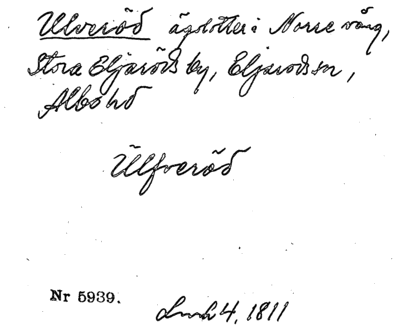 Ulveröd ägolotter i Norre vång,
Stora Eljaröds by, Eljaröds sn,
Albo hd
Ülfveröd
Nr 5939.
4, 1811